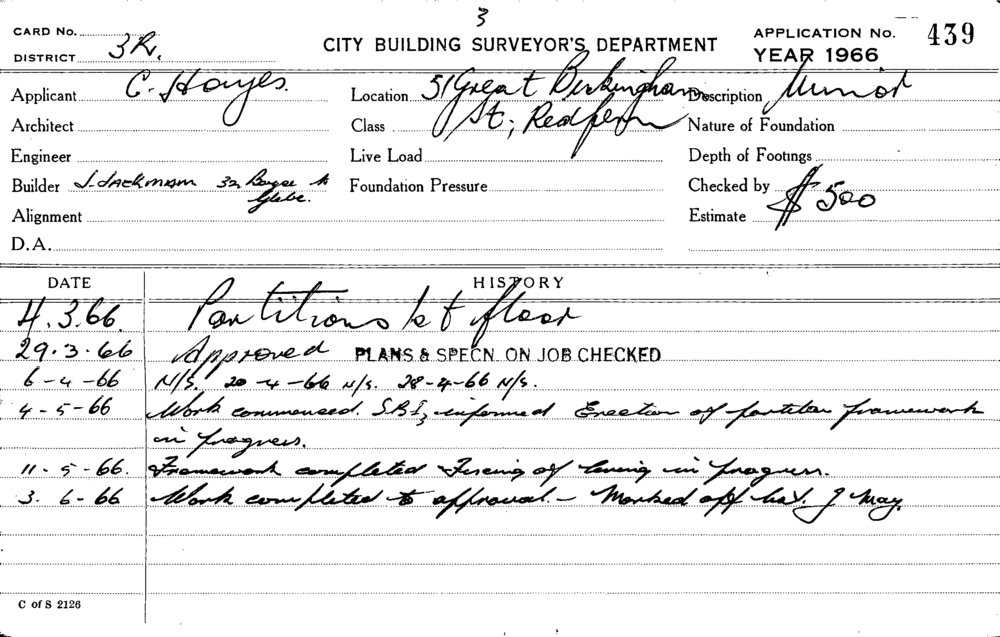 3
CARD No. CITY BUILDING SURVEYOR'S DEPARTMENT APPLICATION No. 439
DISTRICT 3R. YEAR 1966
Applicant C. Hayes. Location 51 Great Buckingham Description Minor
Architect Class St; Redfern Nature of Foundation
Engineer Live Load Depth of Footings
Builder J. Jackman 32 St Foundation Pressure Checked by
Glebe.
Alignment Estimate $500
D.A.
DATE HISTORY
4.3.66. Partitions 1st floor
29.3.66 Approved PLANS & SPECN. ON JOB CHECKED
6-4-66 N/S. 20-4-66 N/S. 28-4-66 N/S.
4-5-66 Work commenced. informed Erection of partition framework
in progress.
11-5-66. Framework completed Fixing of lining in progress.
3.6-66 Work completed to approval. - Marked off J May.
C of S 2126